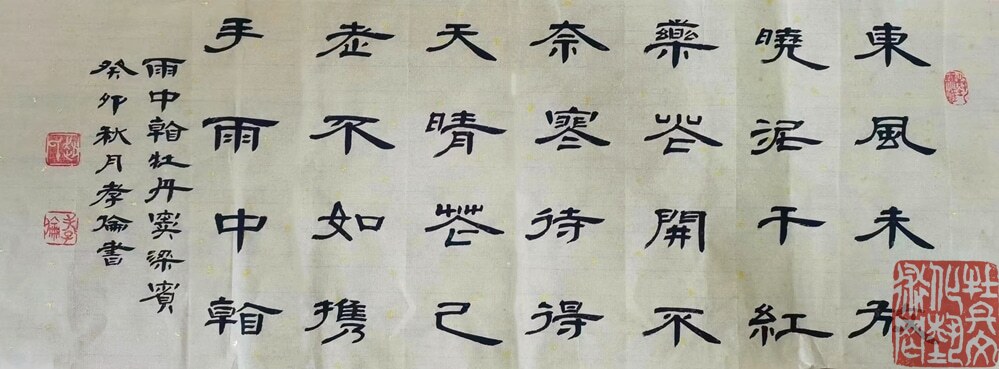 東風未放
曉泥干紅
藥花開不
奈寒待得
天晴花已
老不如携
手雨中看
雨中看牡丹竇梁賓
癸卯秋月孝倫書
孝倫